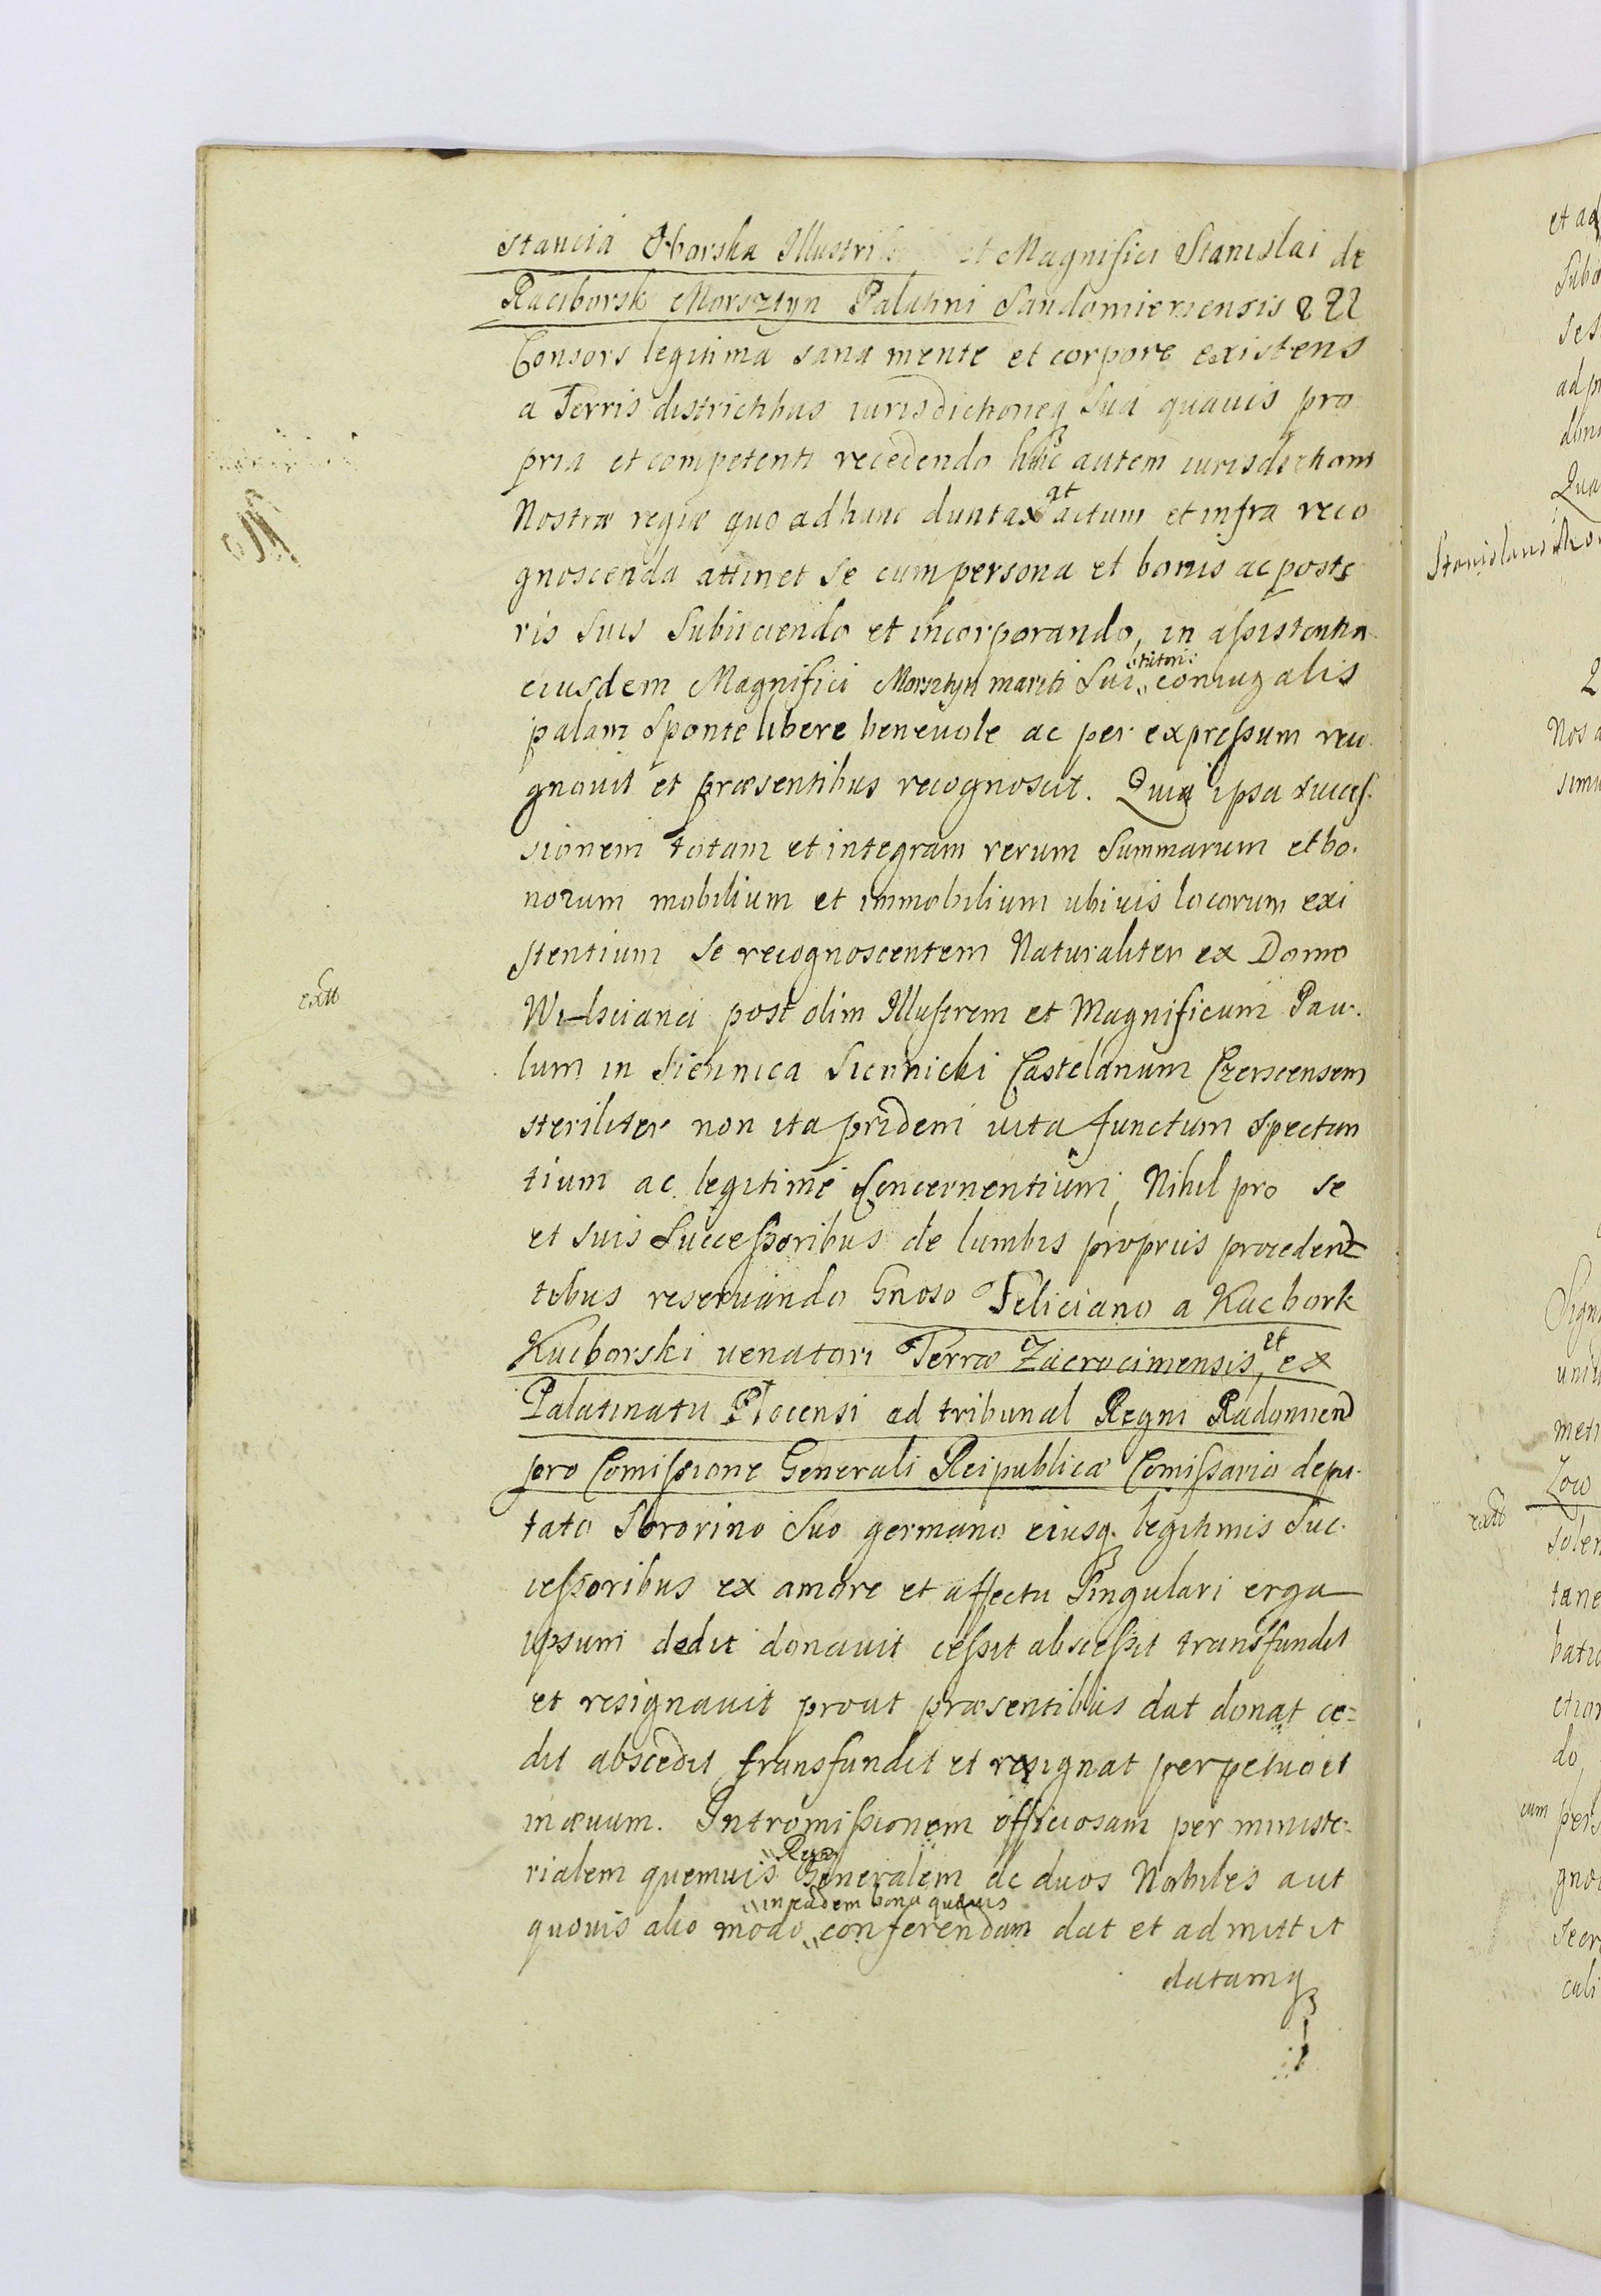 stancia Oborska Illustris et Magnifici Stanislai de
Raciborsk Morsztyn Palatini Sandomiriensis &&&
Consors legitima sana mente et corpore existens
a Terris districtibus iurisdictioneq sua quauis pro
pria et competenti recedendo huic autem iurisdictioni
Nostræ regiæ quo ad hunc duntaxat actum et infra reco
gnoscenda attinet se cum persona et bonis ac poste
ris suis subiiciendo et incorporando, in assistentia
eiusdem Magnifici Morsztyn mariti sui tutori: coniugalis
palam sponte libere beneuole ac per expressum reco
gnouit et præsentibus recognoscit. Quia ipsa succes-
sionem totam et integram rerum summarum et bo-
norum mobilium et immobilium ubiuis locorum exi
stentium se recognoscentem Naturaliter ex Domo
extt
post olim Illustrem et Magnificum Pau-
lum in Siennica Siennicki Castelanum Czerscensem
steriliter non ita pridem uita functum spectan
tium ac legitimè concernentium, Nihil pro se
et suis Successoribus de lumbis propriis procedent
tibus reseruando Gnoso Feliciano a Kucbork
Kucborski uenatori Terræ Zacrocimensis, et ex
Palatinatu Plocensi ad tribunal Regni Radomien
pro Comissione Generali Reipublicæ Comissario depu-
tato Sororino suo germano eiusq. legitimis suc-
cessoribus ex amore et affectu singulari erga
ipsum dedit donauit cessit abscessit transfundit
et resignauit prout præsentibus dat donat ce=
dit abscedit transfundit et resignat perpetuo et
in æuum. Intromissionem officiosam per ministe-
rialem quemuis Regni Generalem ac duos Nobiles aut
quouis alio modo in eadem bona quæuis conferendam dat et admittit
datamq